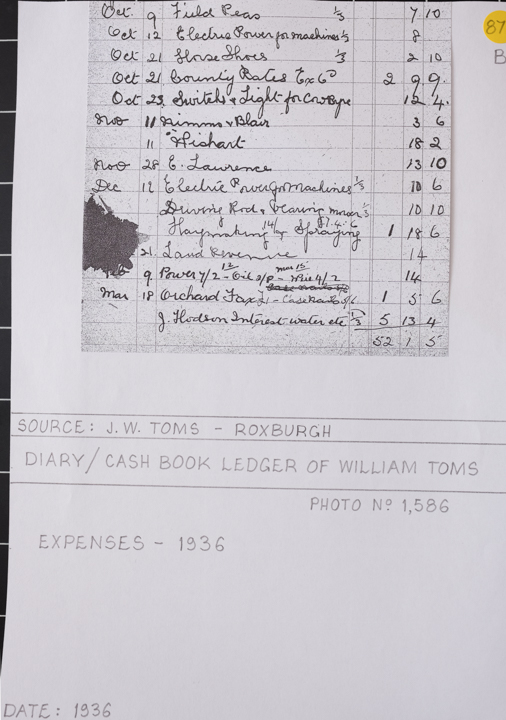 Oct 9 Field Peas 1/3 7 10
Oct 12 Electric Power for machines 1/3 8
Oct 21 Horse Shoes 1/3 2 10
Oct 21 County Rates 2 9 9
Oct 23 Switch & Light for 12 4
Nov 11 Nimmo & Blair 3 6
11 Wishart 18 2
Nov 28 E. Lawrence 13 10
Dec 12 Electric Power for Machines 1/3 10 6
Driving Rod & bearing mower 1/3 10 10
Haymaking 14/- Spraying £1.4.6 1 18 6
21 Land Revenue 14
Feb 9 Power 4/2 - Oil 14
Mar 18 Orchard Tax £1 - 1 5 6
J. Hodson Interest water etc 1/3 5 13 4
52 1 5
87
B
SOURCE: J.W. TOMS - ROXBURGH
DIARY/CASH BOOK LEDGER OF WILLIAM TOMS
PHOTO Nº 1,586
EXPENSES - 1936
DATE: 1936